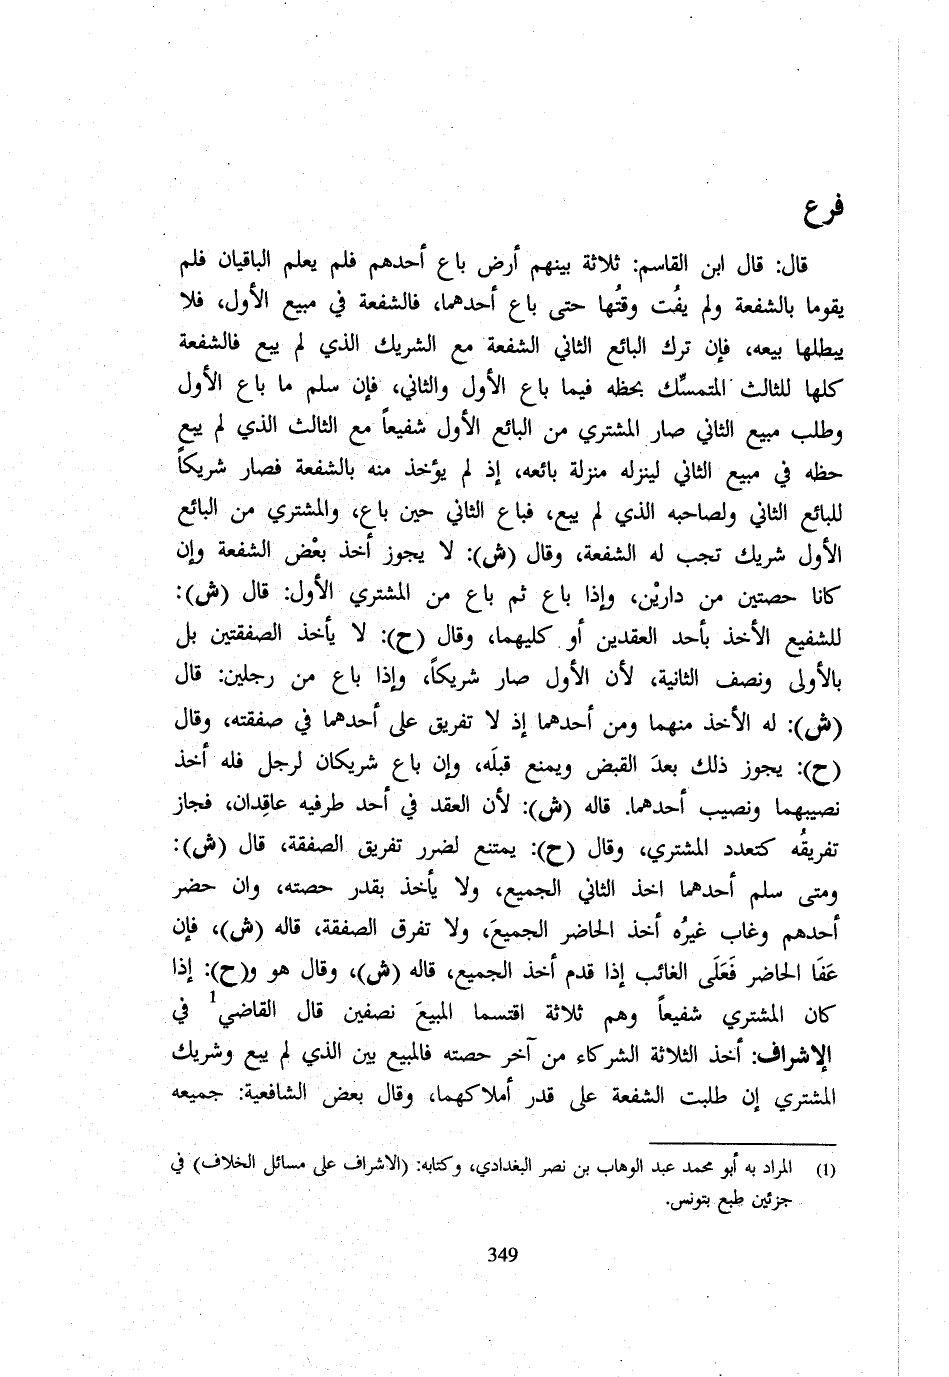 فرع
قال: قال ابن القاسم: ثلاثة بينهم أرض باع أحدهم فلم يعلم الباقيان فلم
يقوما بالشفعة ولم يفُت وقتُها حتى باع أحدهما، فالشفعة في مبيع الأول، فلا
يبطلها بيعه، فإن ترك البائع الثاني الشفعة مع الشريك الذي لم يبع فالشفعة
كلها للثالث المتمسِّك بحظه فيما باع الأول والثاني، فإن سلم ما باع الأول
وطلب مبيع الثاني صار المشتري من البائع الأول شفيعاً مع الثالث الذي لم يبع
حظه في مبيع الثاني لينزله منزلة بائعه، إذ لم يؤخذ منه بالشفعة فصار شريكاً
للبائع الثاني ولصاحبه الذي لم يبع، فباع الثاني حين باع، والمشتري من البائع
الأول شريك تجب له الشفعة، وقال (ش): لا يجوز أخذ بعْض الشفعة وإن
كانا حصتين من داريْن، وإذا باع ثم باع من المشتري الأول: قال (ش):
للشفيع الأخذ بأحد العقدين أو كليهما، وقال (ح): لا يأخذ الصفقتين بل
بالأولى ونصف الثانية، لأن الأول صار شريكاً، وإذا باع من رجلين: قال
(ش): له الأخذ منهما ومن أحدهما إذ لا تفريق على أحدهما في صفقته، وقال
(ح): يجوز ذلك بعدَ القبض ويمنع قبلَه، وإن باع شريكان لرجل فله أخذ
نصيبهما ونصيب أحدهما. قاله (ش): لأن العقد في أحد طرفيه عاقِدان، فجاز
تفريقُه كتعدد المشتري، وقال (ح): يمتنع لضرر تفريق الصفقة، قال (ش):
ومتى سلم أحدهما اخذ الثاني الجميع، ولا يأخذ بقدر حصته، وان حضر
أحدهم وغاب غيرُه أخذ الحاضر الجميعَ، ولا تفرق الصفقة، قاله (ش)، فإن
عَفَا الحاضر فَعَلَى الغائب إذا قدم أخذ الجميع، قاله (ش)، وقال هو و(ح): إذا
كان المشتري شفيعاً وهم ثلاثة اقتسما المبيعَ نصفين قال القاضي1 في
الإشراف: أخذ الثلاثة الشركاء من آخر حصته فالمبيع بين الذي لم يبع وشريك
المشتري إن طلبت الشفعة على قدر أملاكهما، وقال بعض الشافعية: جميعه
(1) المراد به أبو محمد عبد الوهاب بن نصر البغدادي، وكتابه: (الاشراف على مسائل الخلاف) في
جزئين طبع بتونس.
349